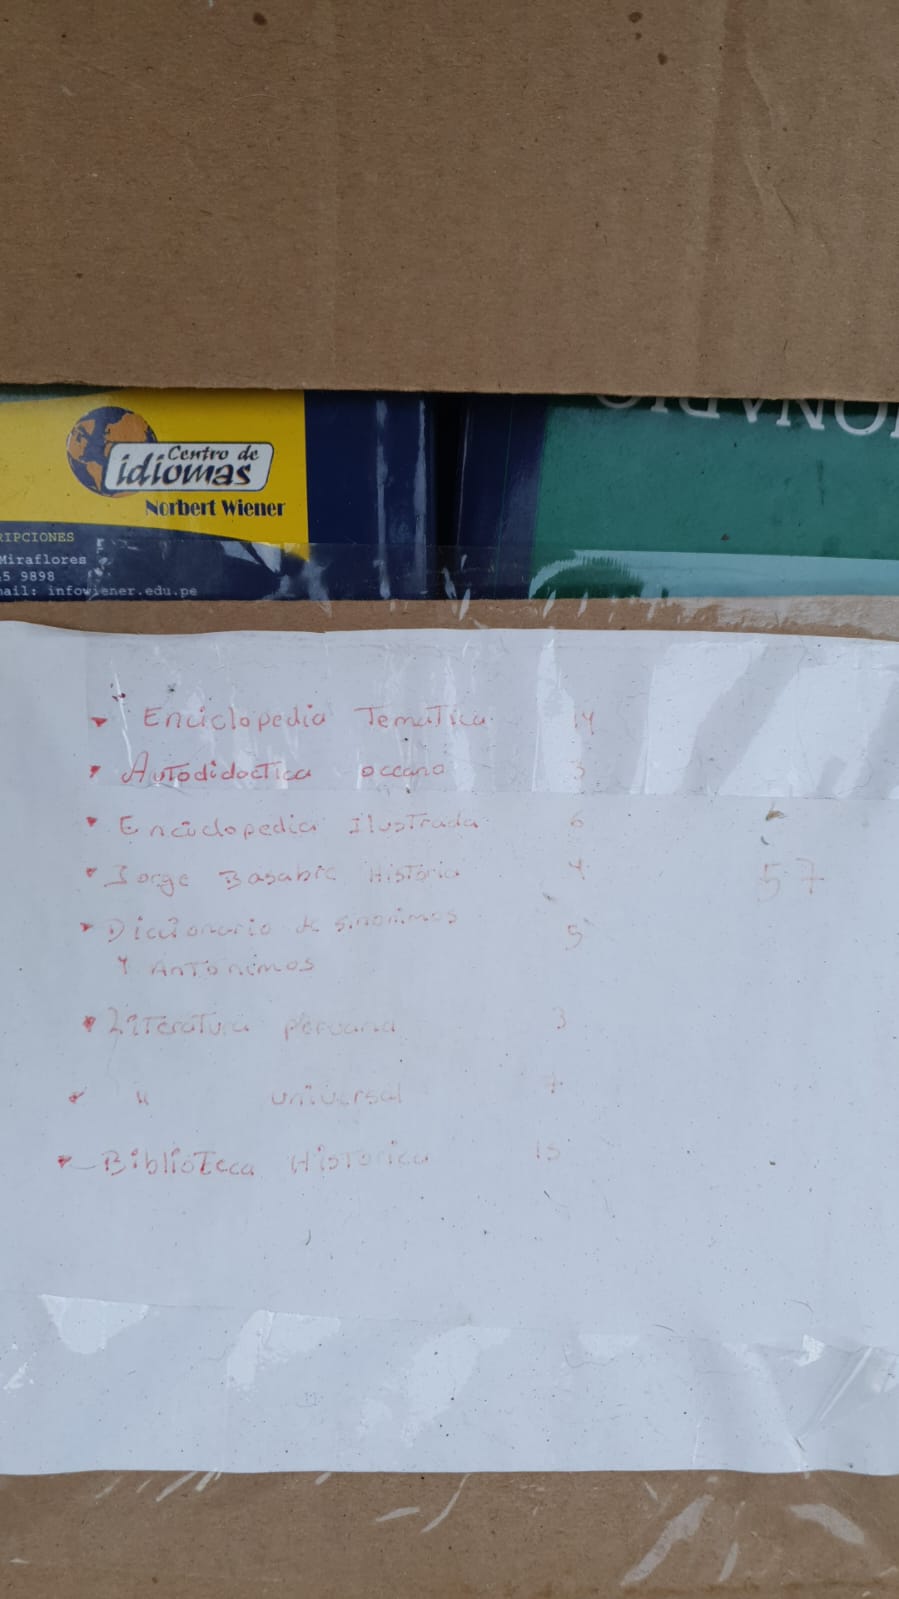 ONARIO
Centro de
idiomas
Norbert Wiener
RIPCIONES
Miraflores
5 9898
mail: infowiener.edu.pe
Enciclopedia Tematica 14
Autodidactica oceano 3
Enciclopedia Ilustrada 6
Jorge Basabre Historia 4
57
Diccionario de sinonimos 5
Y Antonimos
Literatura peruana 3
" universal 7
Biblioteca Historica 15